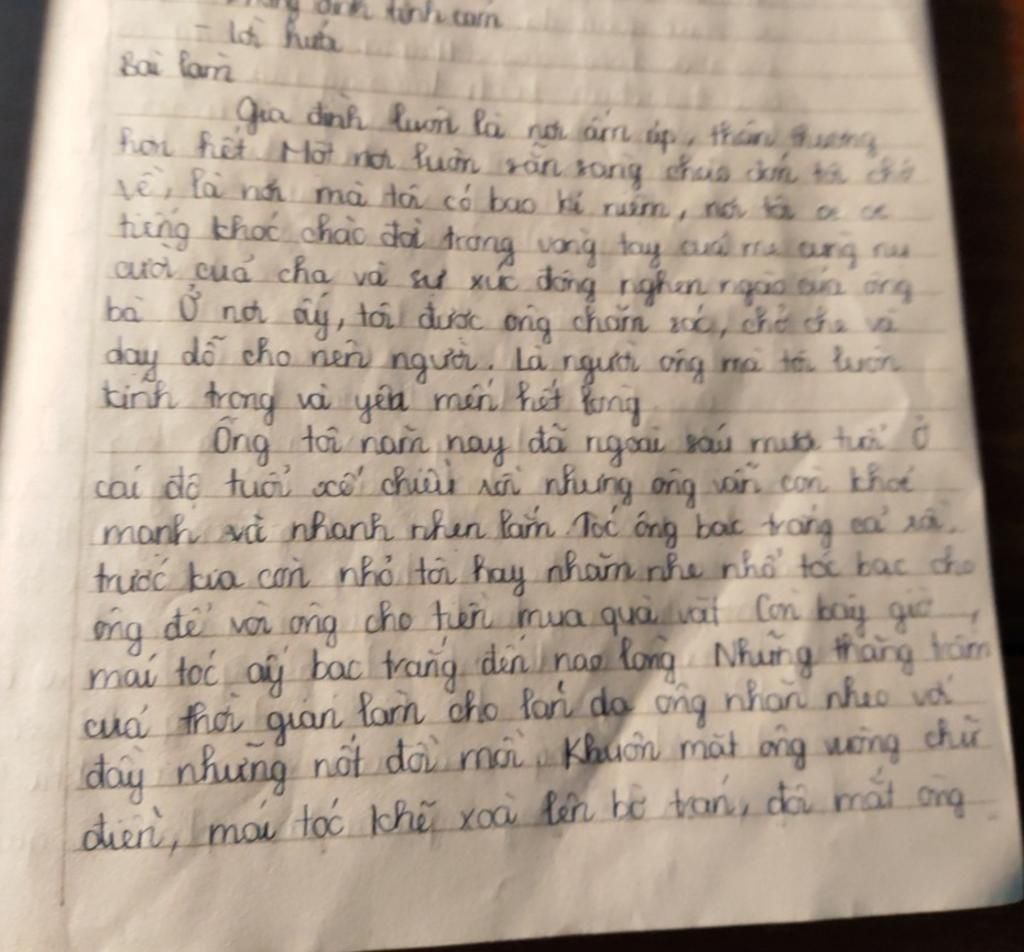 định tình cảm
- Lời hứa
Bài làm
Gia đình luôn là nơi ấm áp, thân thương
hơn hết. Một nơi luôn sẵn sàng chào đón tôi
về, là nơi mà tôi có bao kỉ niệm, nơi tôi oe oe
tiếng khóc chào đời trong vòng tay của mẹ cùng nụ
cười của cha và sự xúc động nghẹn ngào của ông
bà Ở nơi ấy, tôi được ông chăm sóc, chở che và
dạy dỗ cho nên người. Là người ông mà tôi luôn
kính trọng và yêu mến hết lòng
Ông tôi năm nay đã ngoài sáu mươi tuổi Ở
cái độ tuổi xế chiều rồi nhưng ông vẫn còn khoẻ
mạnh và nhanh nhẹn lắm Tóc ông bạc trắng cả rồi.
trước kia còn nhỏ tôi hay nhăm nhe nhổ tóc bạc cho
ông để vòi ông cho tiền mua quà vặt Còn bây giờ,
mái tóc ấy bạc trắng đến nao lòng Những thăng trầm
của thời gian làm cho làn da ông nhăn nheo với
đầy những nốt đồi mồi. Khuôn mặt ông vuông chữ
điền, mái tóc khẽ xoà lên bờ trán, đôi mắt ông